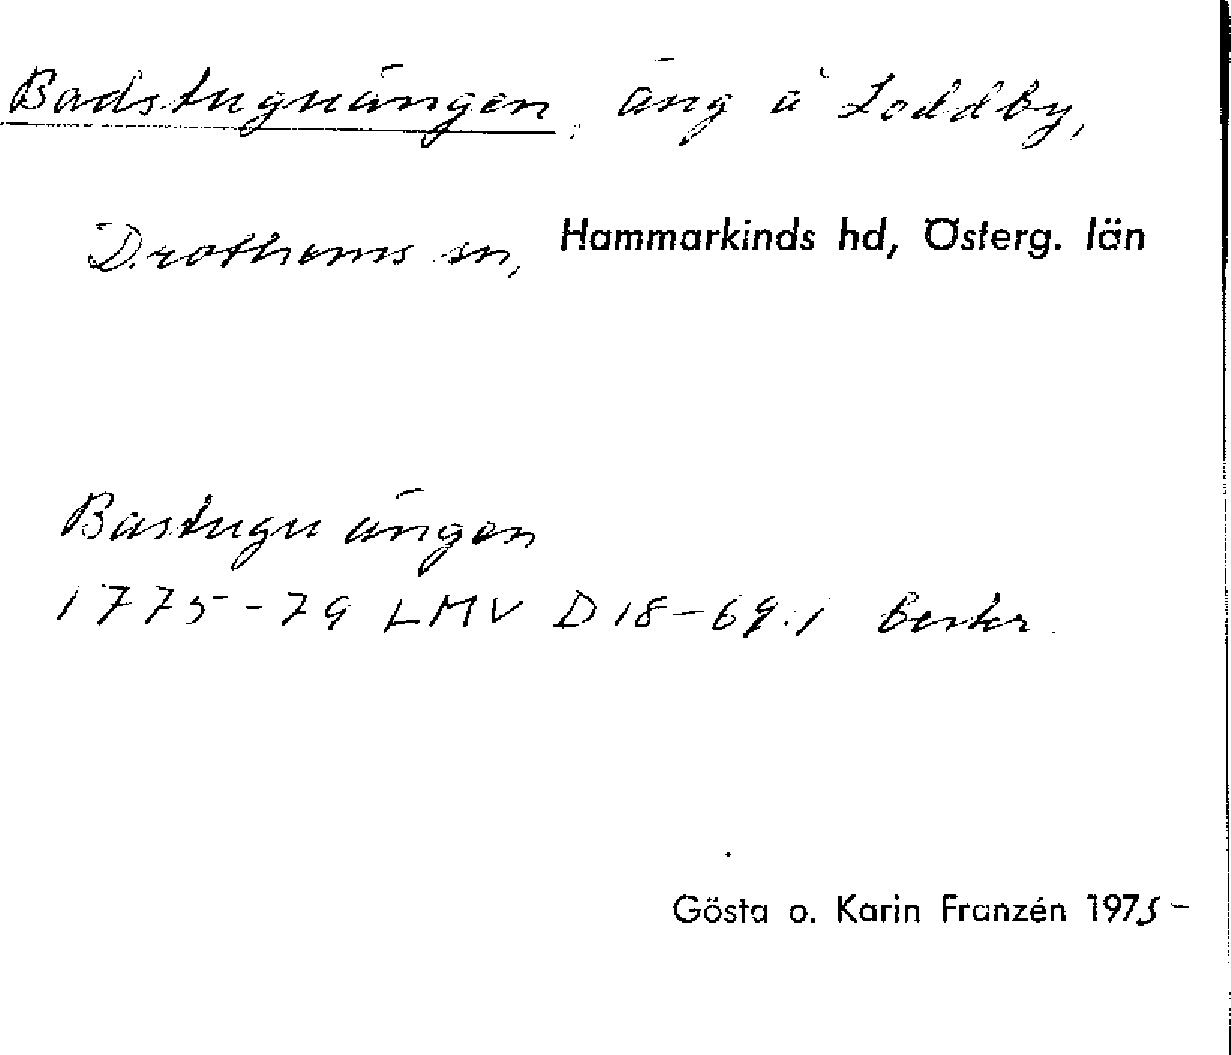 Badstuguängen, äng å Loddby,
Drothems sn, Hammarkinds hd, Österg. län
Bastugu ängen
1775-79 LMV D18-69:1 beskr.
Gösta o. Karin Franzén 1975-